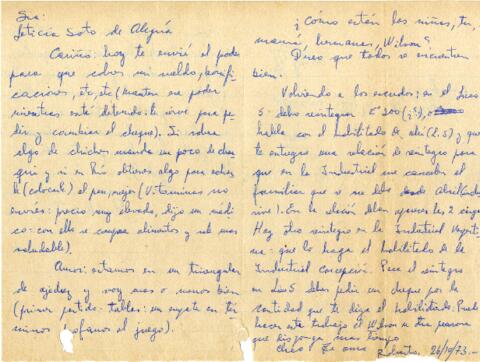 Sra:
Leticia Soto de Alegría
Cariño: hoy te envié el poder
para que cobres mi sueldo, bonifi
caciones, etc, etc (manten ese poder
mientras esté detenido: le sirve para pe
dir y cambiar el cheque). Si sobra
algo de chichos manda un poco de cha
qui y si en Frío obtienes algo para echar
le (colocale) al pan, mejor (Vitaminas no
envíes: precio muy elevado, dijo un médi
co: con ello se compra alimentos y es mas
saludable)
Amor: estamos en un triangular
de ajedrez y voy mas o menos bien
(primer partido: tablas: un empate en tér
minos profanos al juego).
¿Cómo están las niñas, tu,
mamá, hermanas, Wilson?
Deseo que todos se encuentren
bien.
Volviendo a los escudos: en el Liceo
5 debo reintegrar Eº 200 (¿?),
habla con el habilitado de allí (L.5) y que
te entregue una relación de reintegro para
que en la Industrial me cancelen el
familiar que se me debe
Hay otro reintegro en la Industrial
: que lo haga el habilitado de la
Industrial Concepción. Para el reintegro
en Liceo 5 debes pedir un cheque por la
cantidad que te diga el habilitado. Puede
hacer este trabajo el Wilson u otra persona
que disponga mas tiempo
Chao Te amo Roberto. 26/10/73.-